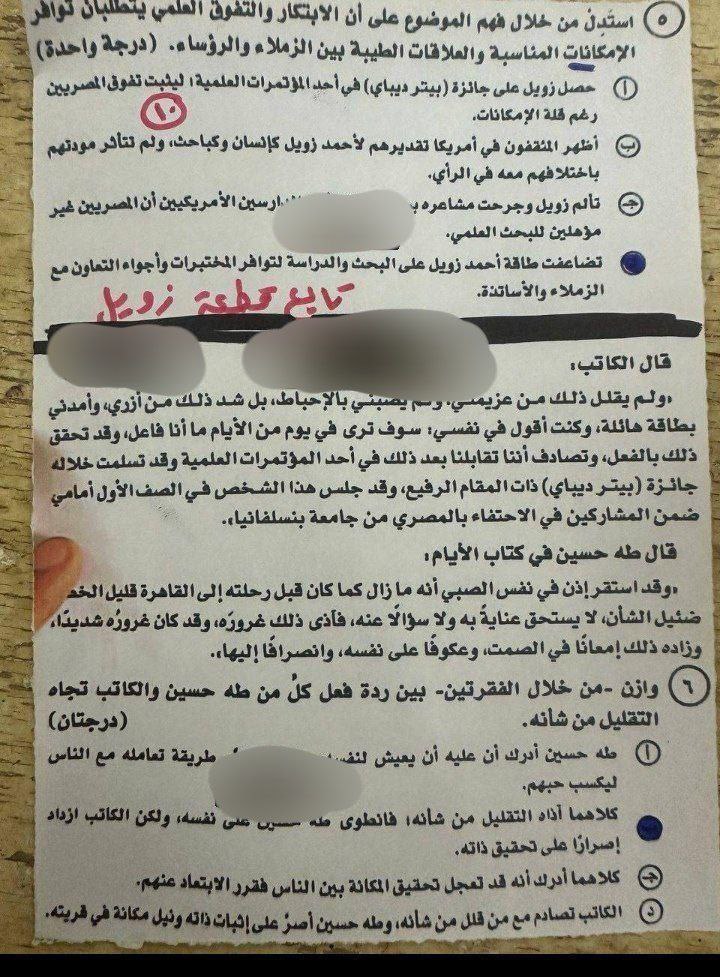 ٥ استَدِلّ من خلال فهم الموضوع على أن الابتكار والتفوق العلمي يتطلبان توافر
الإمكانات المناسبة والعلاقات الطيبة بين الزملاء والرؤساء. (درجة واحدة)
أ حصل زويل على جائزة (بيتر ديباي) في أحد المؤتمرات العلمية؛ ليثبت تفوق المصريين
رغم قلة الإمكانات.
١٠
ب أظهر المثقفون في أمريكا تقديرهم لأحمد زويل كإنسان وكباحث، ولم تتأثر مودتهم
باختلافهم معه في الرأي.
جـ تألم زويل وجرحت مشاعره الدارسين الأمريكيين أن المصريين غير
مؤهلين للبحث العلمي.
تضاعفت طاقة أحمد زويل على البحث والدراسة لتوافر المختبرات وأجواء التعاون مع
الزملاء والأساتذة.
تابع قطعة زويل
قال الكاتب:
«ولم يقلل ذلك من عزيمتي، ولم يصبني بالإحباط، بل شد ذلك من أزري، وأمدني
بطاقة هائلة، وكنت أقول في نفسي: سوف ترى في يوم من الأيام ما أنا فاعل، وقد تحقق
ذلك بالفعل، وتصادف أننا تقابلنا بعد ذلك في أحد المؤتمرات العلمية وقد تسلمت خلاله
جائزة (بيتر ديباي) ذات المقام الرفيع، وقد جلس هذا الشخص في الصف الأول أمامي
ضمن المشاركين في الاحتفاء بالمصري من جامعة بنسلفانيا».
قال طه حسين في كتاب الأيام:
«وقد استقر إذن في نفس الصبي أنه ما زال كما كان قبل رحلته إلى القاهرة قليل الخطر
ضئيل الشأن، لا يستحق عناية به ولا سؤالًا عنه، فآذى ذلك غروره، وقد كان غرورُه شديدًا،
وزاده ذلك إمعانًا في الصمت، وعكوفًا على نفسه، وانصرافًا إليها».
٦ وازن -من خلال الفقرتين- بين ردة فعل كلٌ من طه حسين والكاتب تجاه
التقليل من شأنه. (درجتان)
أ طه حسين أدرك أن عليه أن يعيش لنفسه طريقة تعامله مع الناس
ليكسب حبهم.
كلاهما آذاه التقليل من شأنه؛ فانطوى طه حسين على نفسه، ولكن الكاتب ازداد
إصرارًا على تحقيق ذاته.
جـ كلاهما أدرك أنه قد تعجل تحقيق المكانة بين الناس فقرر الابتعاد عنهم.
د الكاتب تصادم مع من قلل من شأنه، وطه حسين أصرَّ على إثبات ذاته ونيل مكانة في قريته.